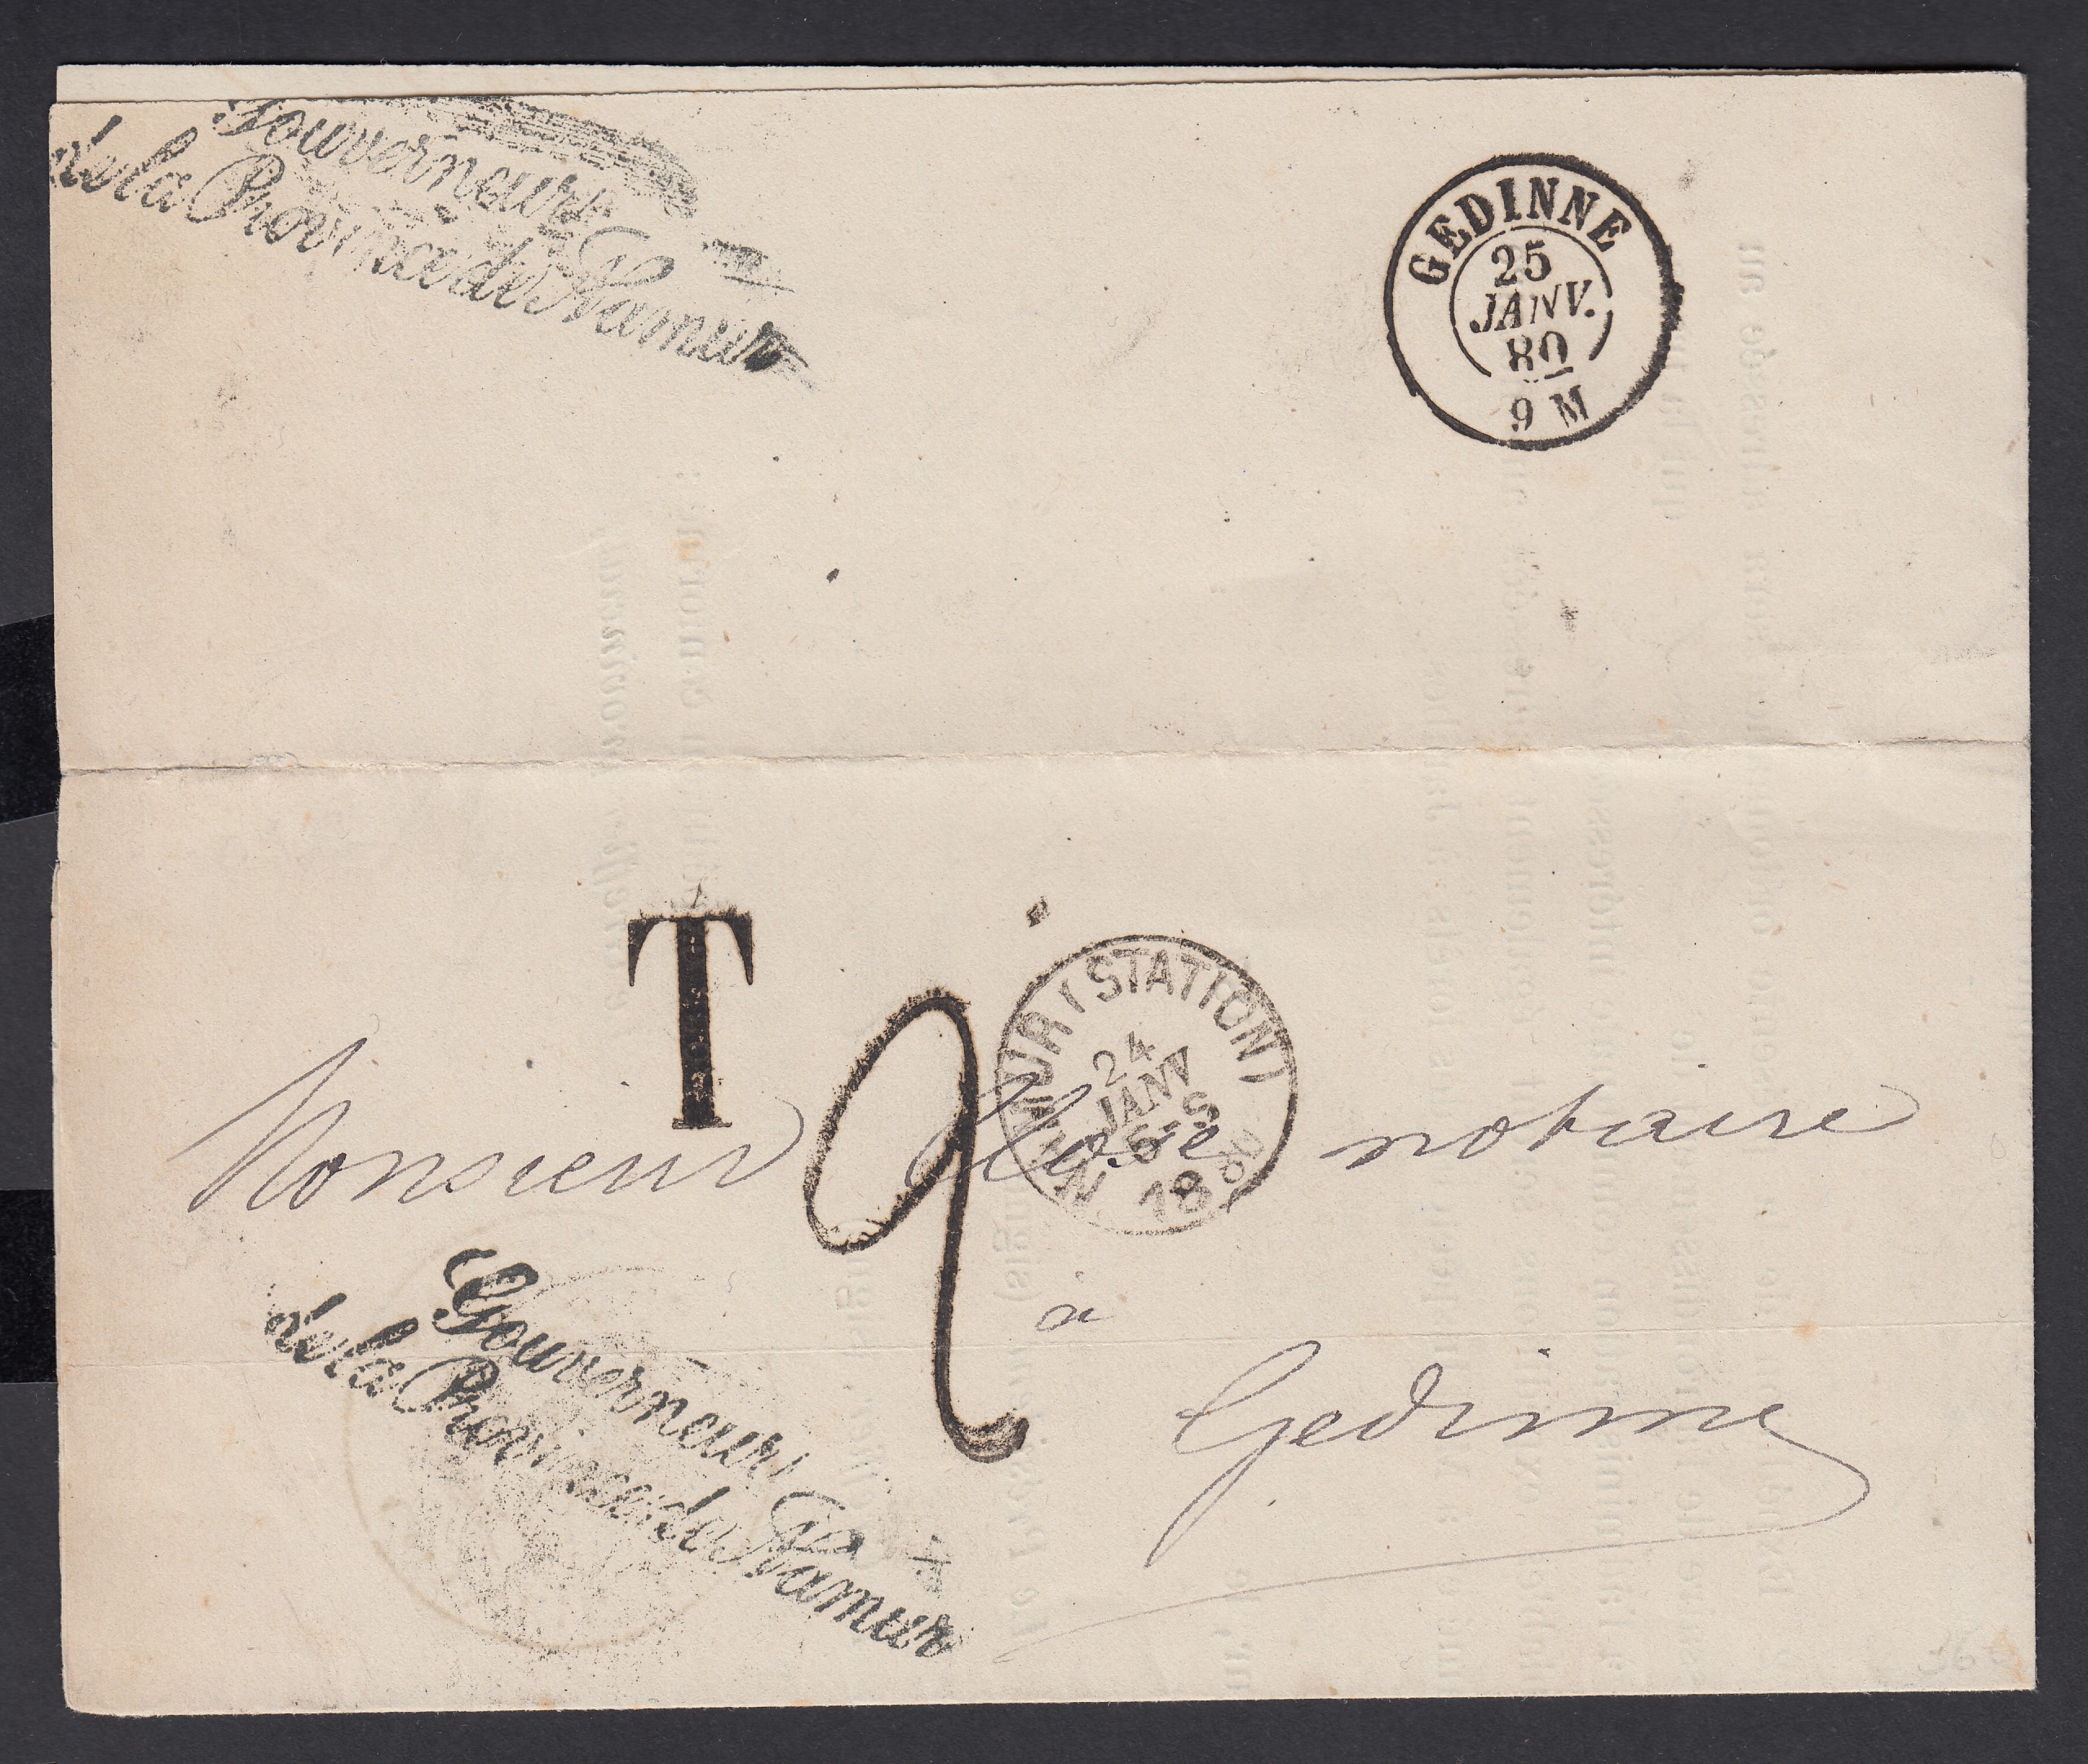 Gouverneur
de la Province de Namur
GEDINNE
25
JANV.
80
9 M
T
2
NAMUR (STATION)
24
JANV
6-S
18
Monsieur notaire
à
Gedinne
Gouverneur
de la Province de Namur